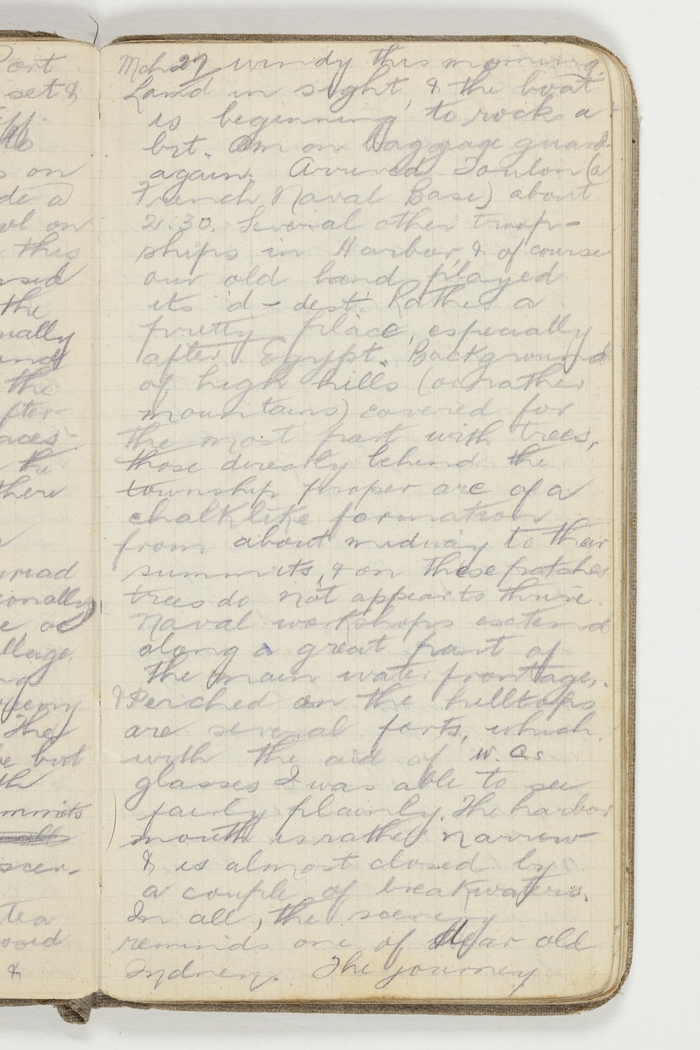 Port
set &
s on
de a
ol on
this
the
nally
the
after
aces.
the
there
yriad
sionally
llage
They
be but
th
mmits
tea
&
Mch 27 windy this morning.
Land in sight, & the boat
is beginning to rock a
bit. Am on baggage guard
again. Arrived Toulon (a
French Naval Base) about
2.30. Several other troop-
ships in Harbor, & of course
our old band played
its d-dest. Rather a
pretty place, especially
after Egypt. Background
of high hills (or rather
mountains) covered for
the most part with trees,
those directly behind the
township proper are of a
chalklike formation
from about midway to their
summits, & on these patches
trees do not appear to thrive.
Naval workshops extend
along a great part of
the main water frontage,
& Perched on the hilltops
are several forts, which
with the aid of W.Os
glasses I was able to see
fairly plainly. The harbor
mouth is rather narrow
& is almost closed by
a couple of breakwaters.
In all, the scenery
reminds one of dear old
Sydney. The journey